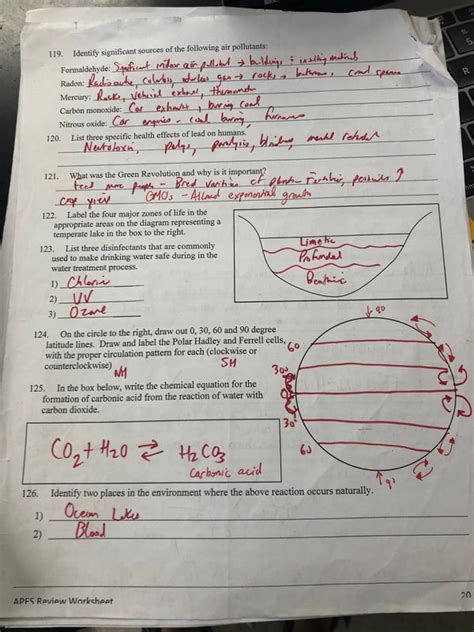 119. Identify significant sources of the following air pollutants:
Formaldehyde: Significant indoor air pollutant → buildings insulting materials
Radon: Radioactive, colorless, odorless gas → rocks → crawl spaces
Mercury: Rocks, exhaust, thermometer
Carbon monoxide: Car exhaust, burning coal
Nitrous oxide: Car engines - coal burning, furnaces
120. List three specific health effects of lead on humans.
paralysis, blindness mental
121. What was the Green Revolution and why is it important?
Feed more people - Bred of plants - pesticides ↑
crop yield GMOs - Allowed exponential growth
122. Label the four major zones of life in the
appropriate areas on the diagram representing a
temperate lake in the box to the right.
Limetic
Profundal
Benthic
123. List three disinfectants that are commonly
used to make drinking water safe during in the
water treatment process.
1) Chlorine
2) UV
3) Ozone
124. On the circle to the right, draw out 0, 30, 60 and 90 degree
latitude lines. Draw and label the Polar Hadley and Ferrell cells,
with the proper circulation pattern for each (clockwise or
counterclockwise) NH SH
90
60
30
0
30
60
90
125. In the box below, write the chemical equation for the
formation of carbonic acid from the reaction of water with
carbon dioxide.
CO2 + H2O ⇌ H2CO3
Carbonic acid
126. Identify two places in the environment where the above reaction occurs naturally.
1) Ocean Lakes
2) Blood
APES Review Worksheet 20